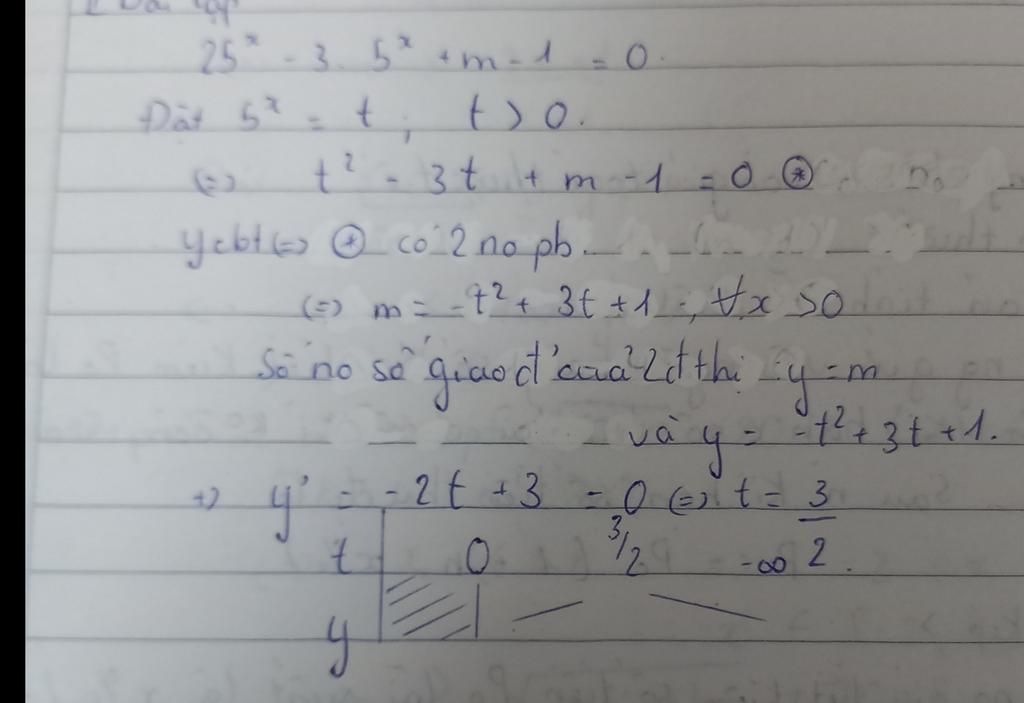 25ˣ - 3. 5ˣ + m - 1 = 0.
Đặt 5ˣ = t, t > 0.
(=) t² - 3t + m - 1 = 0 ⊛
ycbt (=) ⊛ có 2 no pb.
(=) m = -t² + 3t + 1, ∀x > 0
Số no số giao đ' của 2 đ thị y = m
và y = -t² + 3t + 1.
+) y' = -2t + 3 = 0 (=) t = 3/2
t 0 3/2 -∞
y